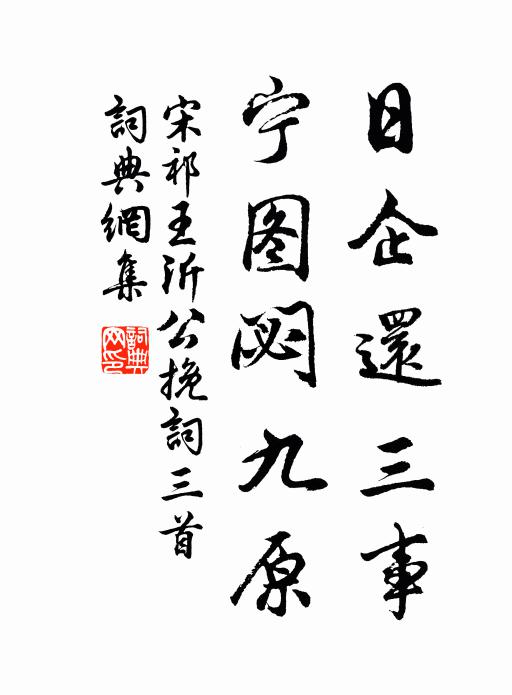 日企還三事
宁图閟九原
宋祁王沂公挽詞三首
詞典網集
詞典网印